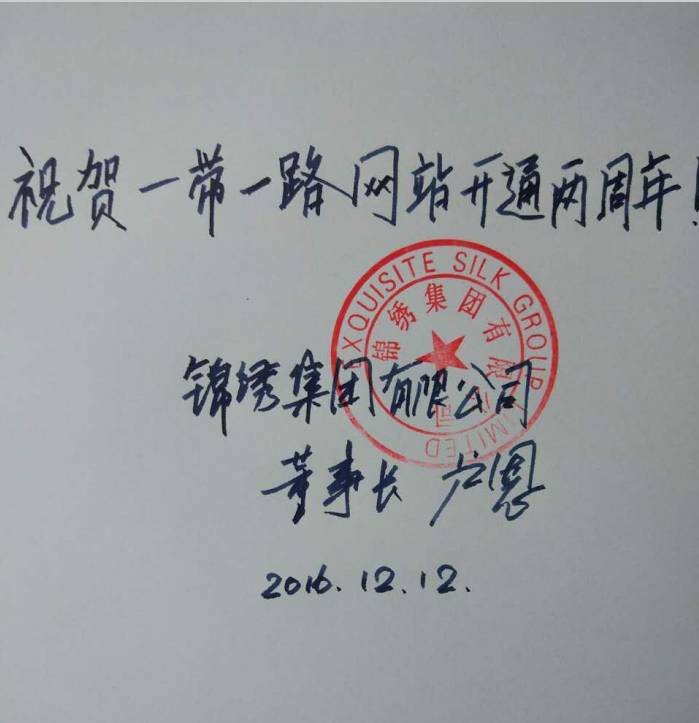 祝贺一带一路网站开通两周年!
EXQUISITE SILK GROUP LIMITED
锦绣集团有限公司
锦绣集团有限公司
董事长 卢恩
2016.12.12.